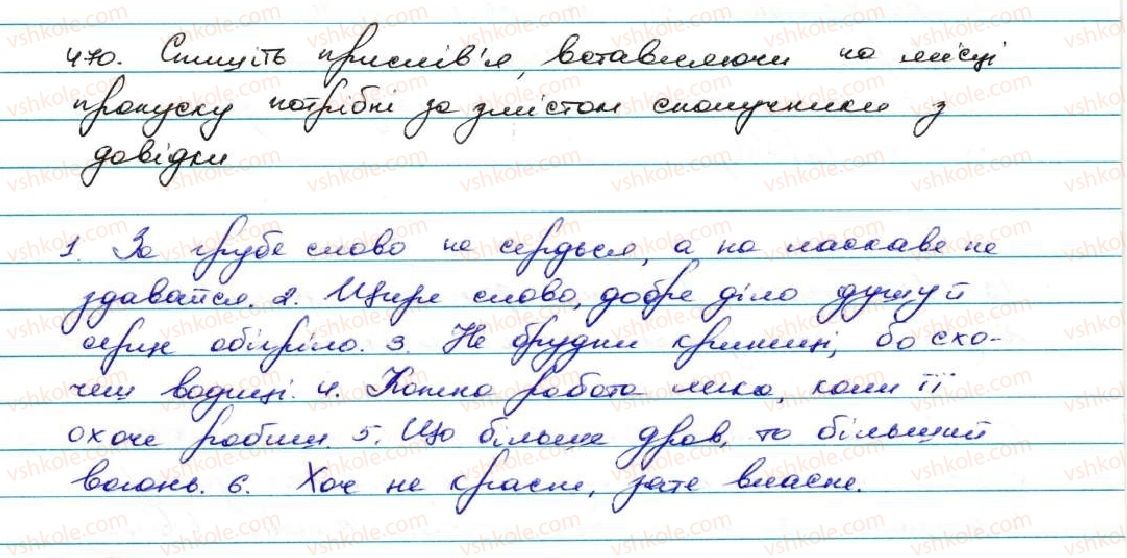 470. Спишіть прислів'я, вставляючи на місці
пропуску потрібні за змістом сполучники з
довідки
1. За грубе слово не сердься, а на ласкаве не
здавайся. 2. Щире слово, добре діло душу й
серце обігріло. 3. Не брудни криниці, бо схо-
чеш водиці. 4. Кожна робота легка, коли її
охоче робиш. 5. Що більше дров, то більший
вогонь. 6. Хоч не красне, зате власне.
vshkole.com